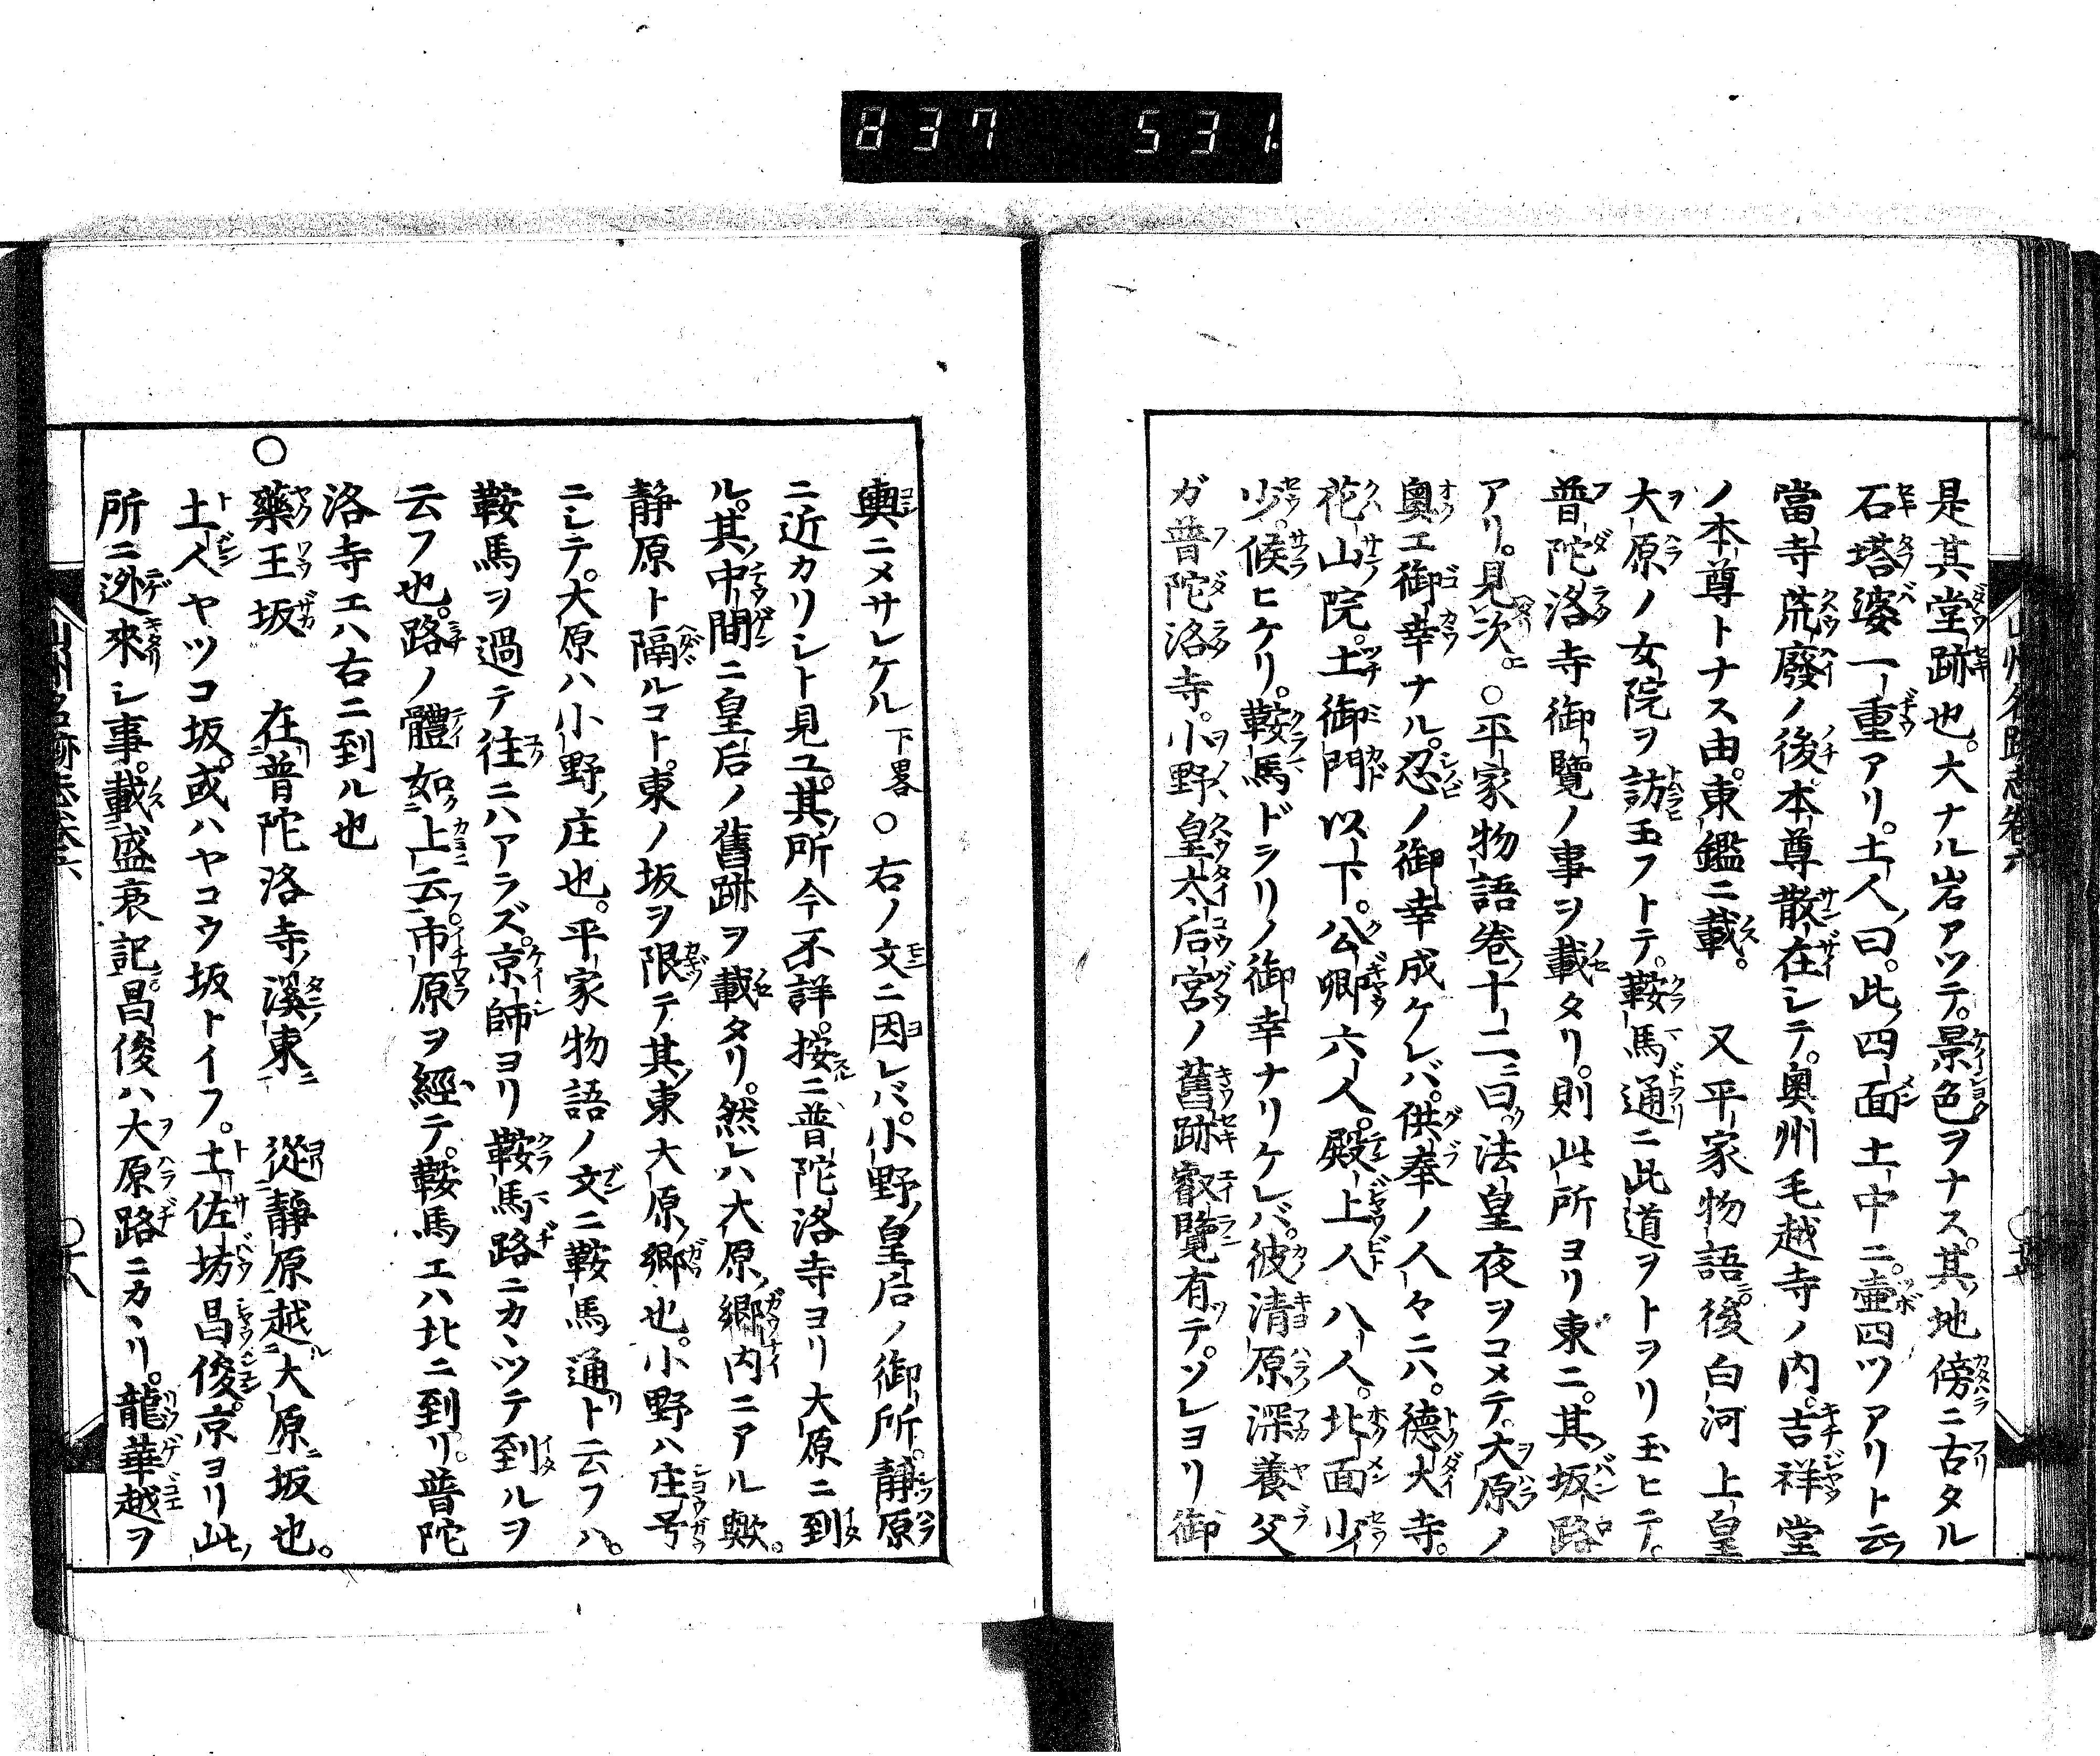 837 531
是其堂跡也。大ナル岩アツテ。景色ヲナス。其地傍ニ古タル
石塔婆一重アリ。土人ノ曰。此四面土中ニ。壷四ツアリト云
當寺荒廢ノ後本尊散在シテ。奥州毛越寺ノ内。吉祥堂
ノ本尊トナス由。東鑑ニ載。 又平家物語ニ。後白河上皇
大原ノ女院ヲ訪玉フトテ。鞍馬通ニ此道ヲトヲリ玉ヒテ。
普陀洛寺御覽ノ事ヲ載タリ。則此所ヨリ東ニ。其坂路
アリ。見次。○平家物語卷十二ニ曰。法皇夜ヲコメテ。大原ノ
奥エ御幸ナル。忍ノ御幸成ケレバ。供奉ノ人々ニハ。德大寺。
花山院。土御門以下。公卿六人。殿上人八人。北面少
少。候ヒケリ。鞍馬ドヲリノ御幸ナリケレバ。彼清原深養父
ガ普陀洛寺。小野皇太后宮ノ舊跡叡覽有テ。ソレヨリ御
輿ニメサレケル 下畧 ○右ノ文ニ因レバ。小野皇后ノ御所。靜原
ニ近カリシト見ユ。其所今不詳。按ニ普陀洛寺ヨリ大原ニ到
ル。其中間ニ皇后ノ舊跡ヲ載タリ。然レハ大原ノ郷内ニアル歟。
静原ト隔ルコト。東ノ坂ヲ限テ其東大原ノ郷也。小野ハ庄号
ニシテ。大原ハ小野ノ庄也。平家物語ノ文ニ鞍馬通ト云フハ。
鞍馬ヲ過テ往ニハアラズ。京師ヨリ鞍馬路ニカヽツテ到ルヲ
云フ也。路ノ體如上云市原ヲ經テ。鞍馬エハ北ニ到リ。普陀
洛寺エハ右ニ到ル也
○藥王坂 在普陀洛寺溪東ニ 從靜原越大原ニ坂也。
土人ヤツコ坂。或ハヤコウ坂トイフ。土佐坊昌俊。京ヨリ此
所ニ迯來シ事。載盛衰記。昌俊ハ大原路ニカヽリ。龍華越ヲ
山州名跡志卷六